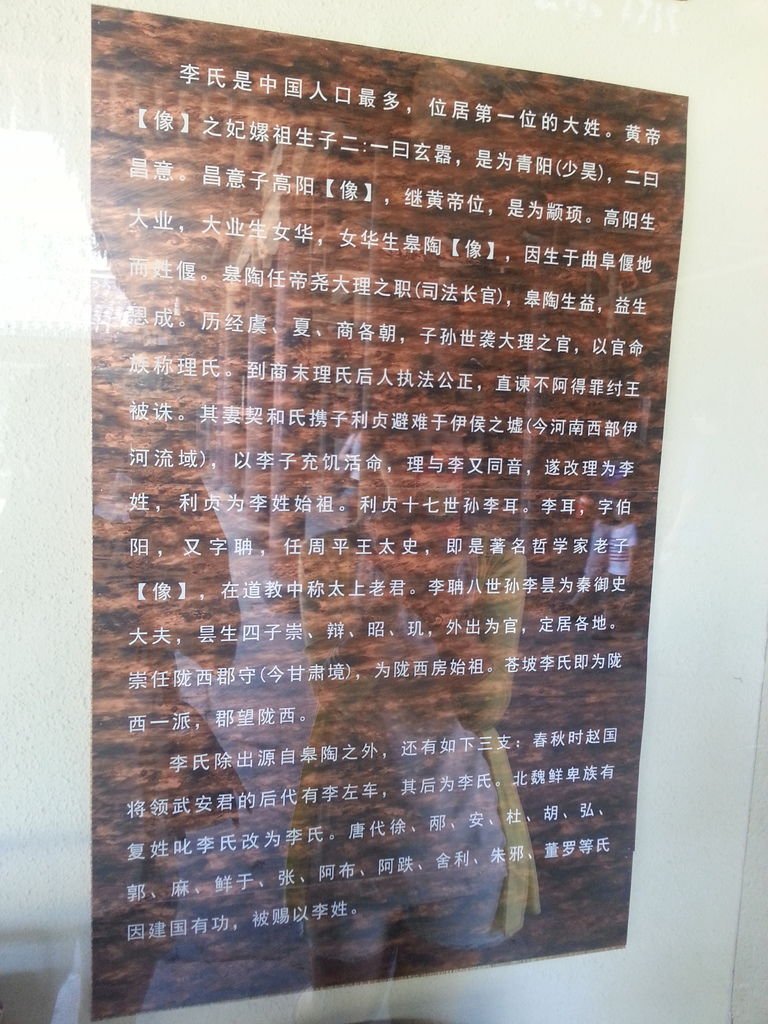 李氏是中国人口最多，位居第一位的大姓。黄帝
【像】之妃嫘祖生子二:一曰玄嚣，是为青阳(少昊)，二曰
昌意。昌意子高阳【像】，继黄帝位，是为颛顼。高阳生
大业，大业生女华，女华生皋陶【像】，因生于曲阜偃地
而姓偃。皋陶任帝尧大理之职(司法长官)，皋陶生益，益生
恩成。历经虞、夏、商各朝，子孙世袭大理之官，以官命
族称理氏。到商末理氏后人执法公正，直谏不阿得罪纣王
被诛。其妻契和氏携子利贞避难于伊侯之墟(今河南西部伊
河流域)，以李子充饥活命，理与李又同音，遂改理为李
姓，利贞为李姓始祖。利贞十七世孙李耳。李耳，字伯
阳，又字聃，任周平王太史，即是著名哲学家老子
【像】，在道教中称太上老君。李聃八世孙李昙为秦御史
大夫，昙生四子崇、辩、昭、玑，外出为官，定居各地。
崇任陇西郡守(今甘肃境)，为陇西房始祖。苍坡李氏即为陇
西一派，郡望陇西。
李氏除出源自皋陶之外，还有如下三支：春秋时赵国
将领武安君的后代有李左车，其后为李氏。北魏鲜卑族有
复姓叱李氏改为李氏。唐代徐、邴、安、杜、胡、弘、
郭、麻、鲜于、张、阿布、阿跌、舍利、朱邪、董罗等氏
因建国有功，被赐以李姓。